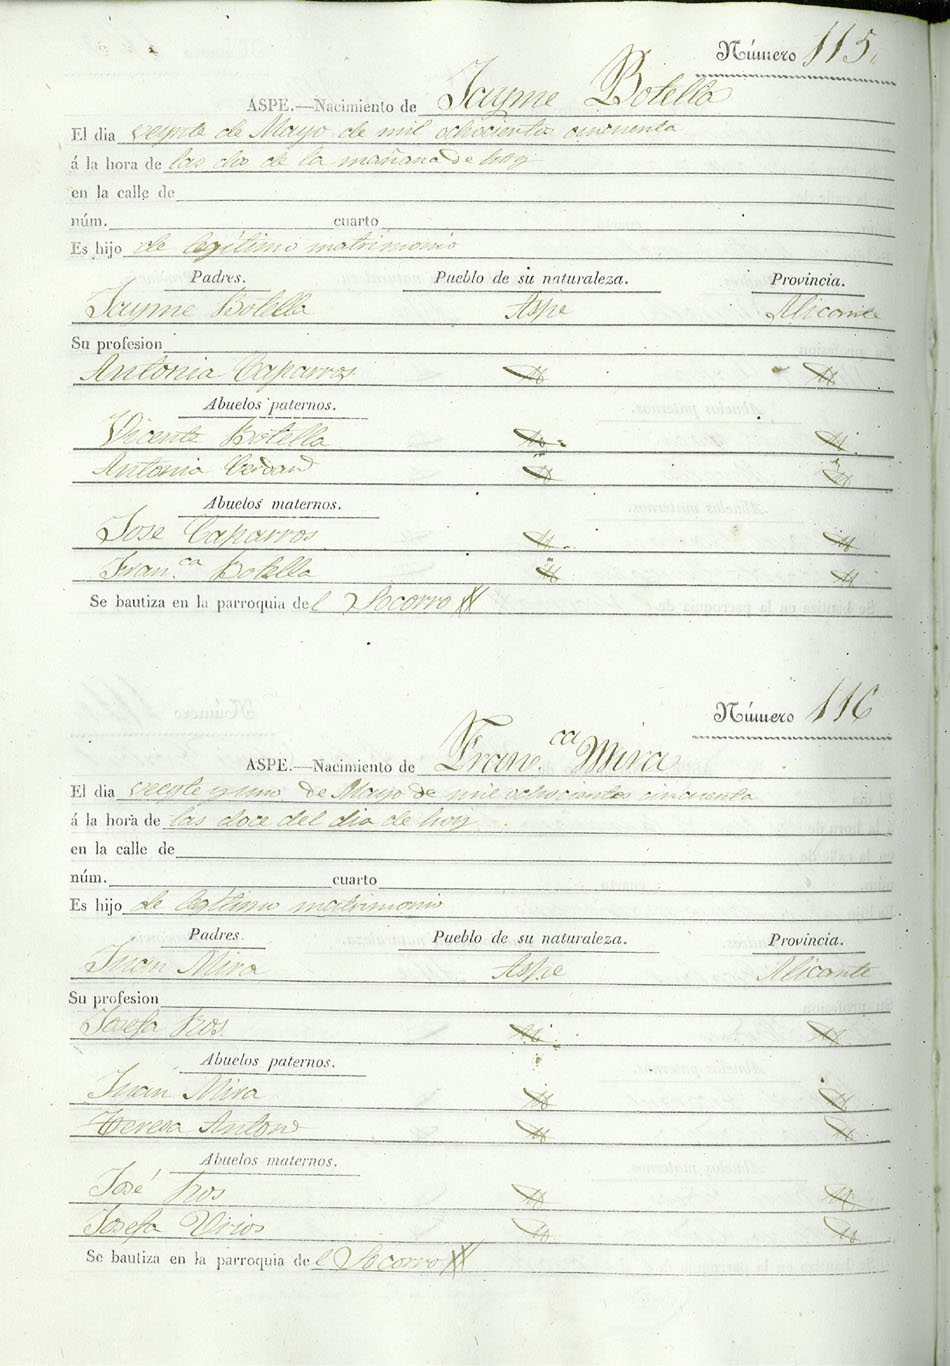 Número 115
ASPE.—Nacimiento de Jayme Botella
El dia veynte de Mayo de mil ochocientos cincuenta
á la hora de las dos de la mañana de hoy
en la calle de
núm. cuarto
Es hijo de legítimo matrimonio
Padres. Pueblo de su naturaleza. Provincia.
Jayme Botella Aspe Alicante
Su profesion
Antonia Caparros
Abuelos paternos.
Vicente Botella
Antonia Cerdan
Abuelos maternos.
Jose Caparros
Fran.ca Botella
Se bautiza en la parroquia del Socorro
Número 116
ASPE.—Nacimiento de Fran.ca Mira
El dia veynte y uno de Mayo de mil ochocientos cincuenta
á la hora de las doce del dia de hoy
en la calle de
núm. cuarto
Es hijo de legitimo matrimonio
Padres. Pueblo de su naturaleza. Provincia.
Juan Mira Aspe Alicante
Su profesion
Josefa
Abuelos paternos.
Juan Mira
Teresa Anton
Abuelos maternos.
José
Josefa
Se bautiza en la parroquia del Socorro